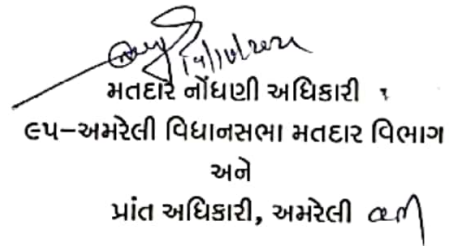 મતદાર નોંધણી અધિકારી
૯૫-અમરેલી વિધાનસભા મતદાર વિભાગ
અને
પ્રાંત અધિકારી, અમરેલી